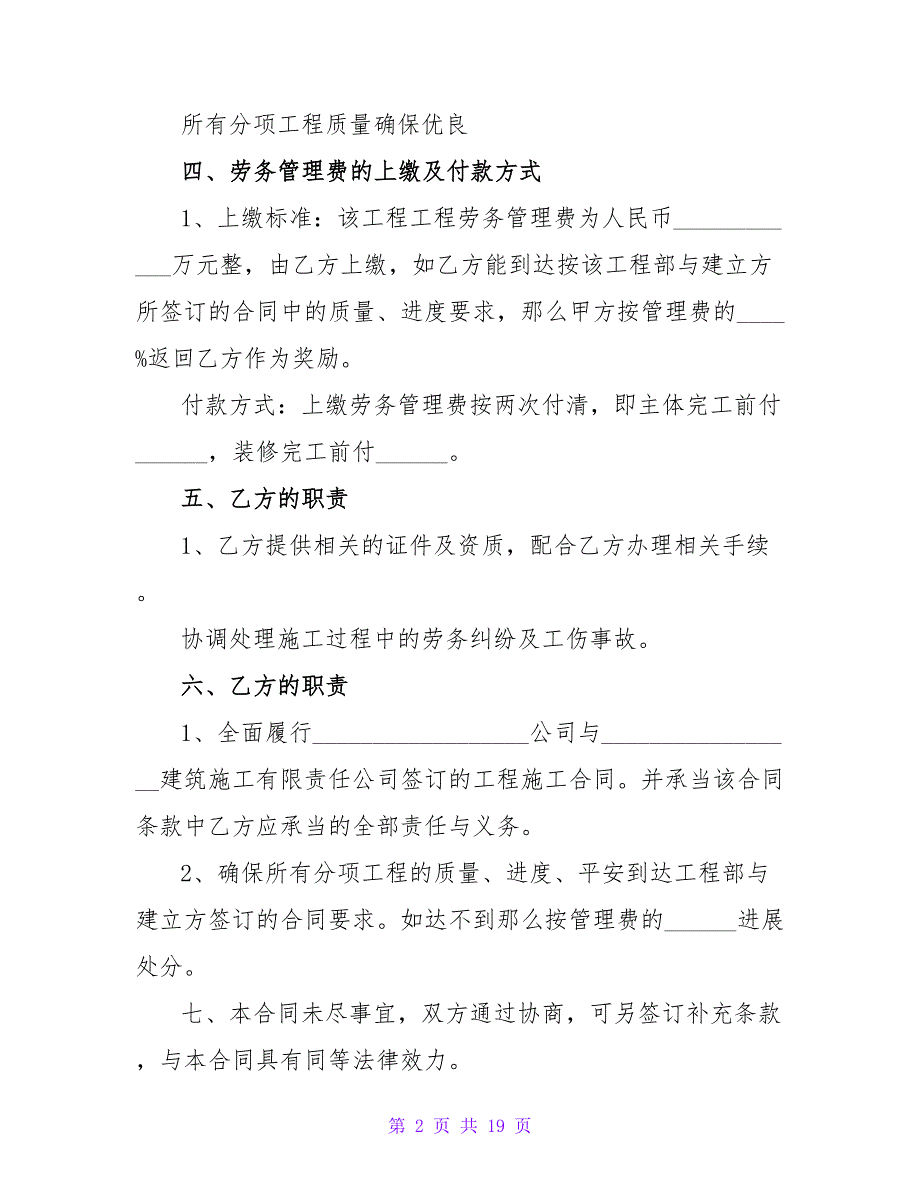 所有分项工程质量确保优良
四、劳务管理费的上缴及付款方式
1、上缴标准：该工程工程劳务管理费为人民币_________
___万元整，由乙方上缴，如乙方能到达按该工程部与建立方
所签订的合同中的质量、进度要求，那么甲方按管理费的____
%返回乙方作为奖励。
付款方式：上缴劳务管理费按两次付清，即主体完工前付
______，装修完工前付______。
五、乙方的职责
1、乙方提供相关的证件及资质，配合乙方办理相关手续
。
协调处理施工过程中的劳务纠纷及工伤事故。
六、乙方的职责
1、全面履行__________________公司与_______________
__建筑施工有限责任公司签订的工程施工合同。并承当该合同
条款中乙方应承当的全部责任与义务。
2、确保所有分项工程的质量、进度、平安到达工程部与
建立方签订的合同要求。如达不到那么按管理费的______进展
处分。
七、本合同未尽事宜，双方通过协商，可另签订补充条款
，与本合同具有同等法律效力。
第 2 页 共 19 页